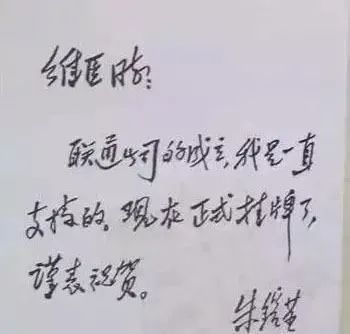 维臣同志：
联通公司的成立，我是一直
支持的。现在正式挂牌了，
谨表祝贺。
朱镕基